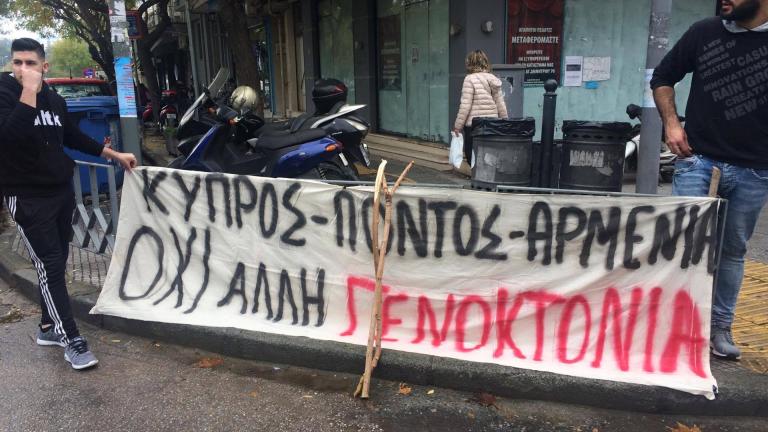 ΚΥΠΡΟΣ-ΠΟΝΤΟΣ-ΑΡΜΕΝΙΑ
ΟΧΙ ΑΛΛΗ ΓΕΝΟΚΤΟΝΙΑ
ΜΕΤΑΦΕΡΟΜΑΣΤΕ